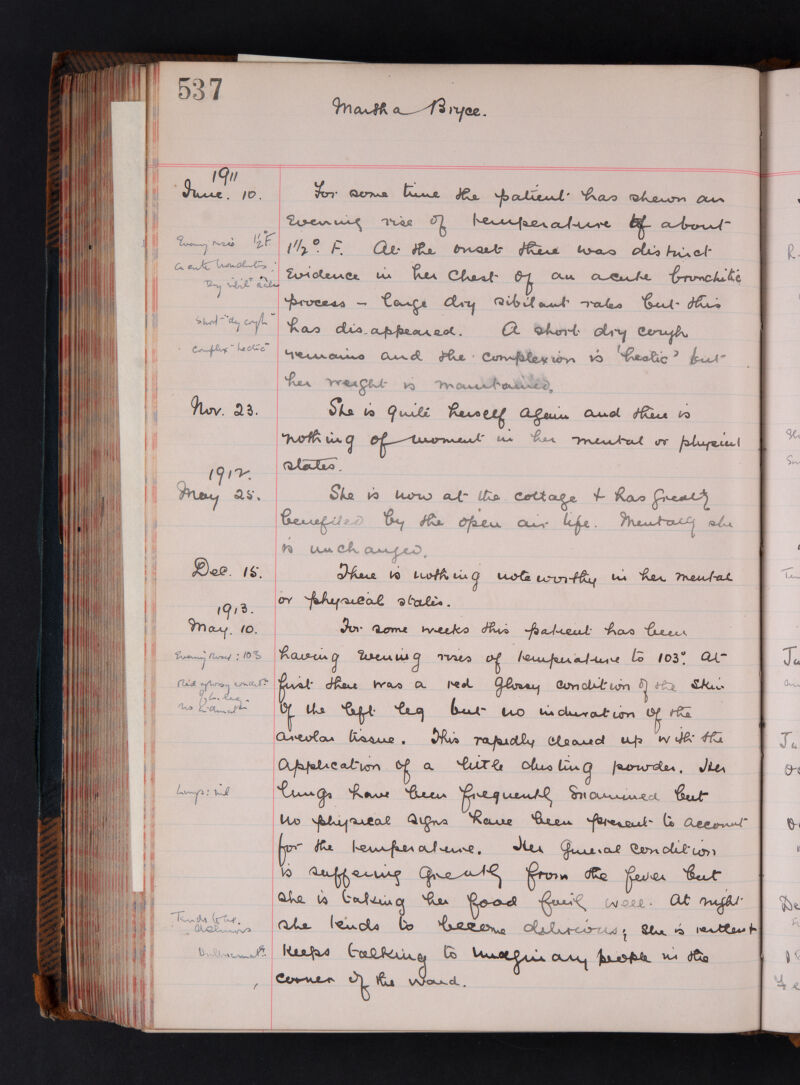 537
Martha Bryce.
1911
June. 10. For some time the patient has shewn an
Evening rise of temperature of about
Evening rise 1½°F 1½° F. At the onset there was distinct
Acute bronchitis: Evidence in her chest of an acute bronchitic
Dry sibil^t râles process – large dry sibilant rales but this
Short "dry cough" has disappeared. A short dry cough
Complex "hectic" remains and the complexion is 'hectic' but
her weight is maintained.
Nov. 23. She is quite herself again and there is
nothing of moment in her mental or physical
states.
1912.
May 25. She is now at the cottage & has greatly
benefitted by the open air life. Mentally she
is unchanged.
Dec. 15. There is nothing noteworthy in her mental
or physical states.
1913.
May. 10. For some weeks this patient has been
Evening rises: 103 having evening rises of temperature to 103°. At
Red glossy first there was a red glossy condition of the skin
of the left leg but no induration of the
no indurat^n
areolar tissue. This rapidly cleared up with the
application of a little dusting powder. Her
Lungs: nil lungs have been frequently examined but
no physical signs have been present to account
for the temperature. Her general condition
is suffering greatly from the fever but
she is taking her food fairly well. At night
Tends to be delirious she tends to become delirious; she is restless &
keeps talking to imaginary people in the
corner of the ward.